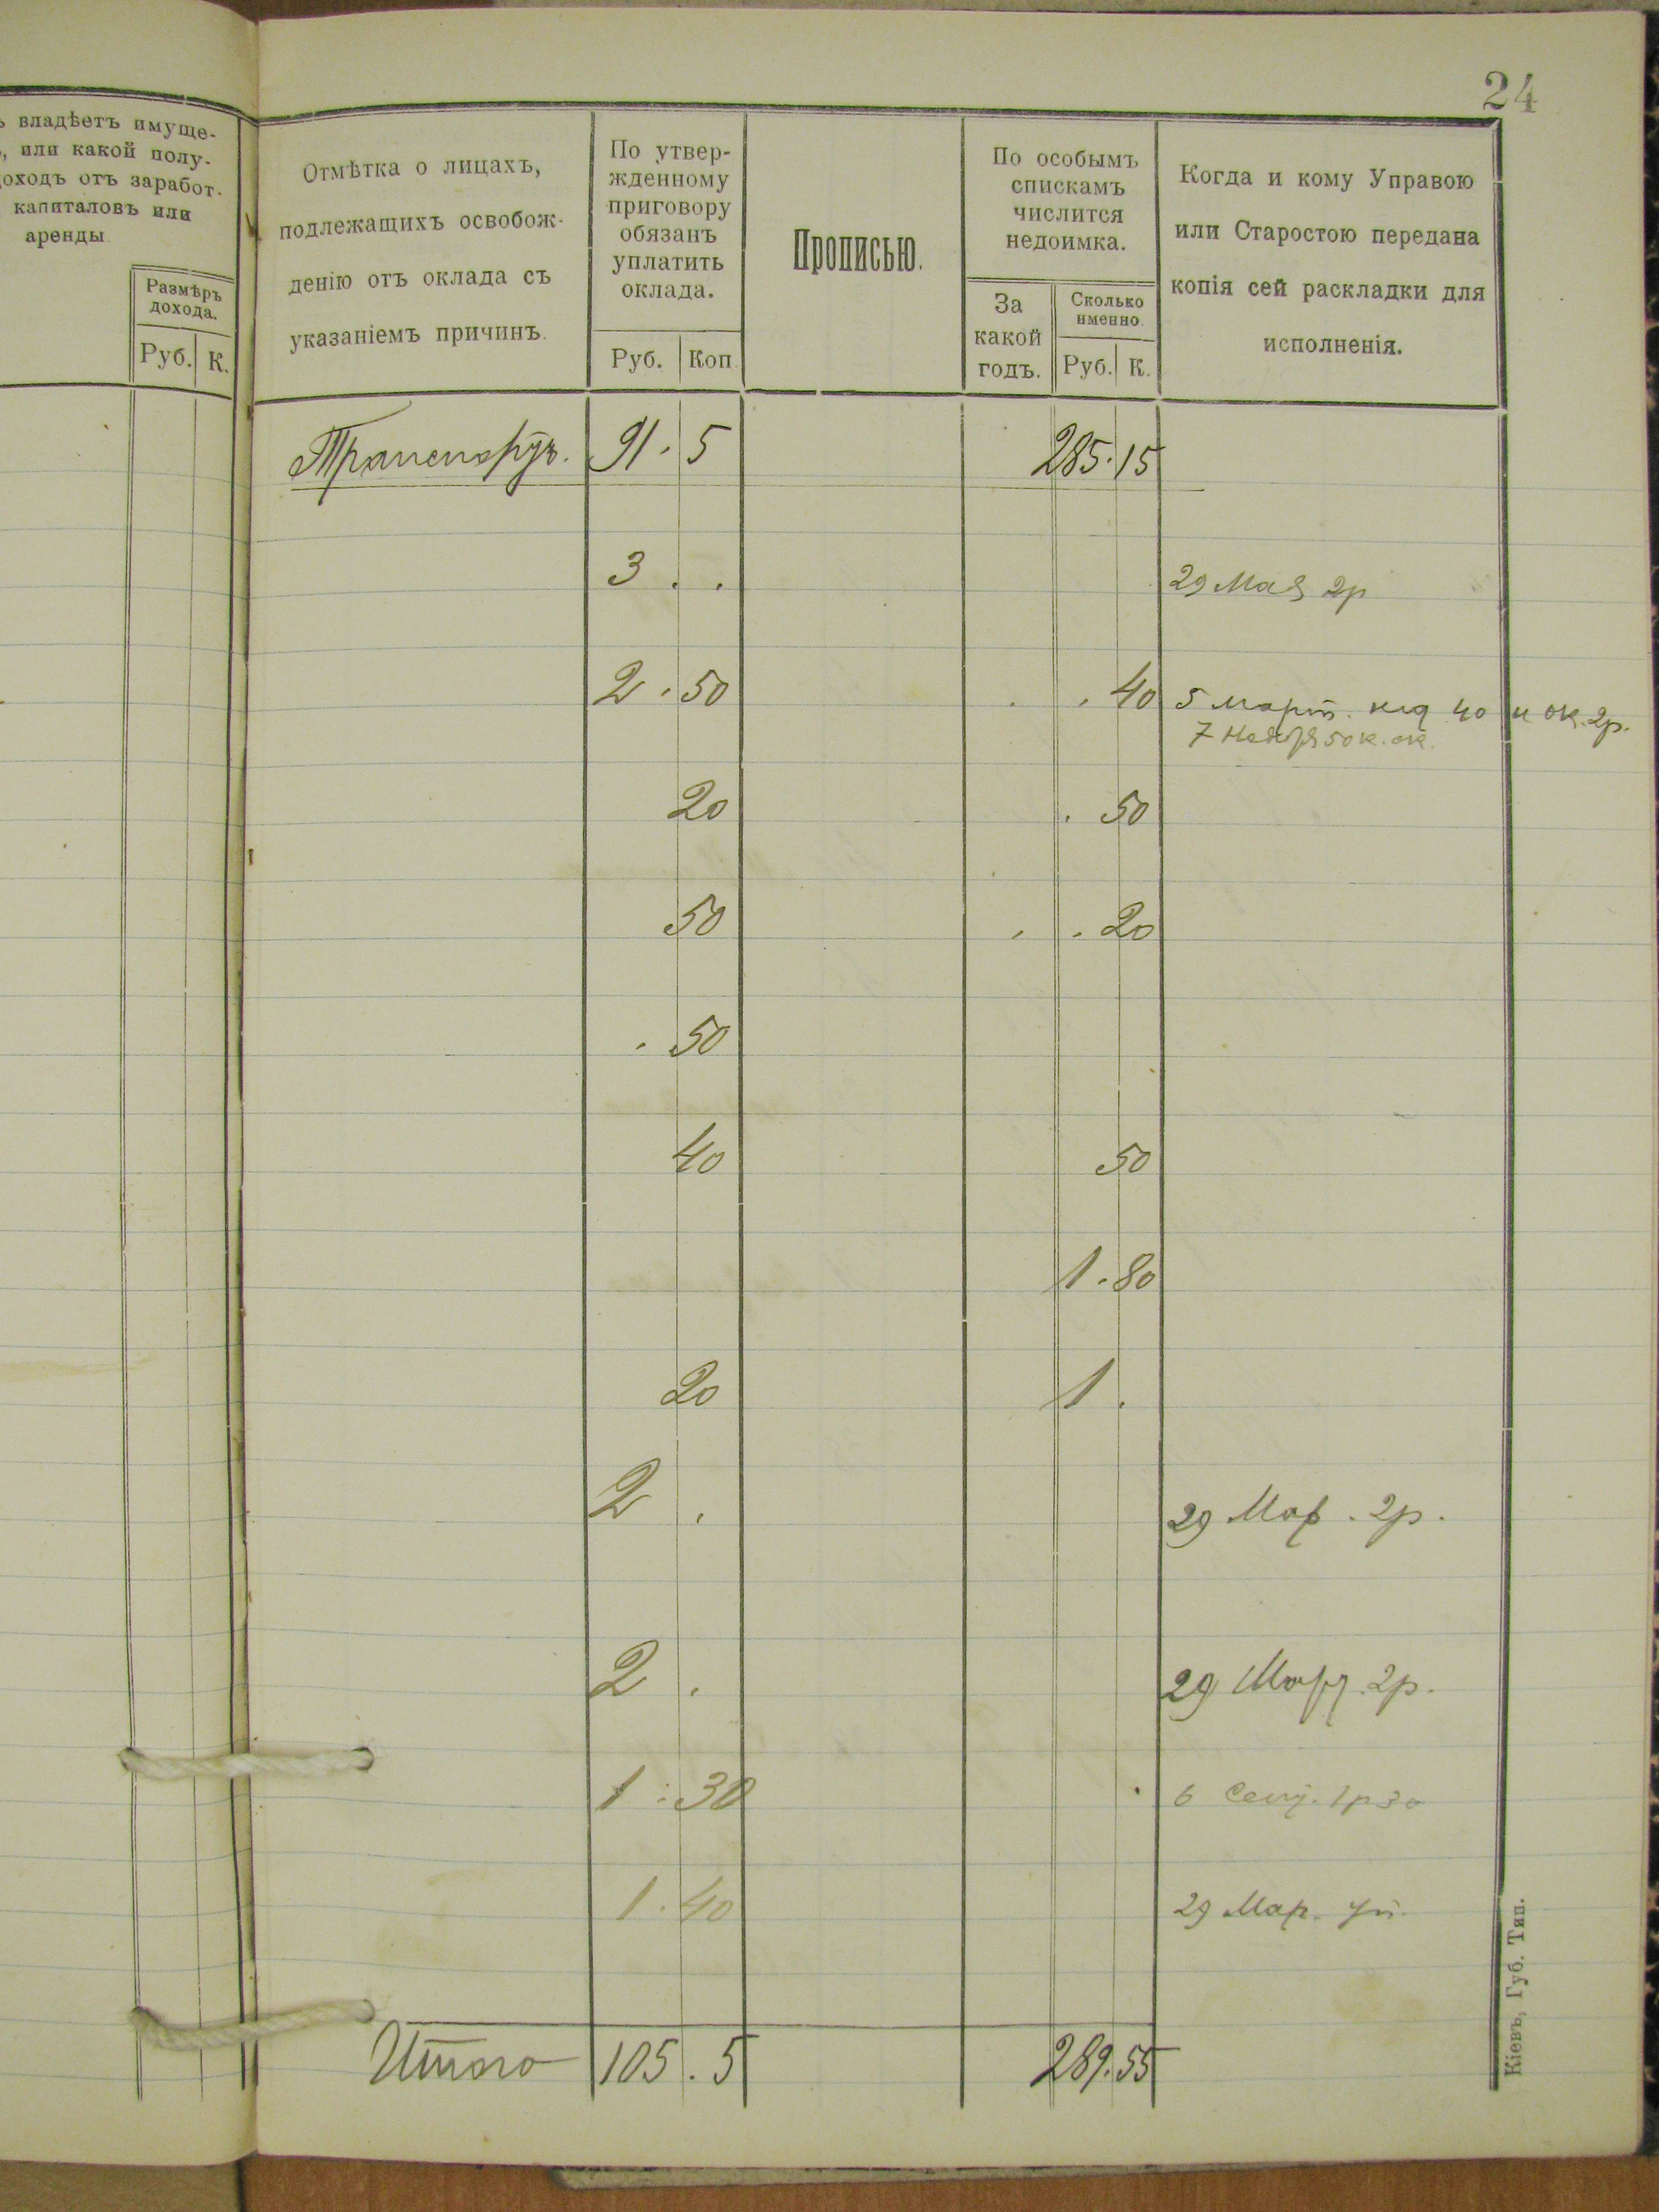 24
ъ владѣетъ имуще-
, или какой полу-
доходъ отъ заработ.
капиталовъ или
аренды
Размѣръ
дохода.
Руб. К.
Отмѣтка о лицахъ,
подлежащихъ освобож-
денію отъ оклада съ
указаніемъ причинъ.
По утвер-
жденному
приговору
обязанъ
уплатить
оклада.
Руб. Коп.
Прописью.
По особымъ
спискамъ
числится
недоимка.
За
какой
годъ.
Сколько
именно.
Руб. К.
Когда и кому Управою
или Старостою передана
копія сей раскладки для
исполненія.
91 . 5 285 . 15
3 . . 29 Мая 2р
2 . 50 . . 40 5 март. 40 и ок. 2р.
7 50 к. ок.
20 . 50
50 . . 20
. 50
40 50
1 . 80
20 1 .
2 . 29 2р.
2 . 29 2р.
1 . 30 6 Сент. 1р 30
1 . 40 29 Мар.
Итого 105 . 5 289 . 55
Кіевъ, Губ. Тип.